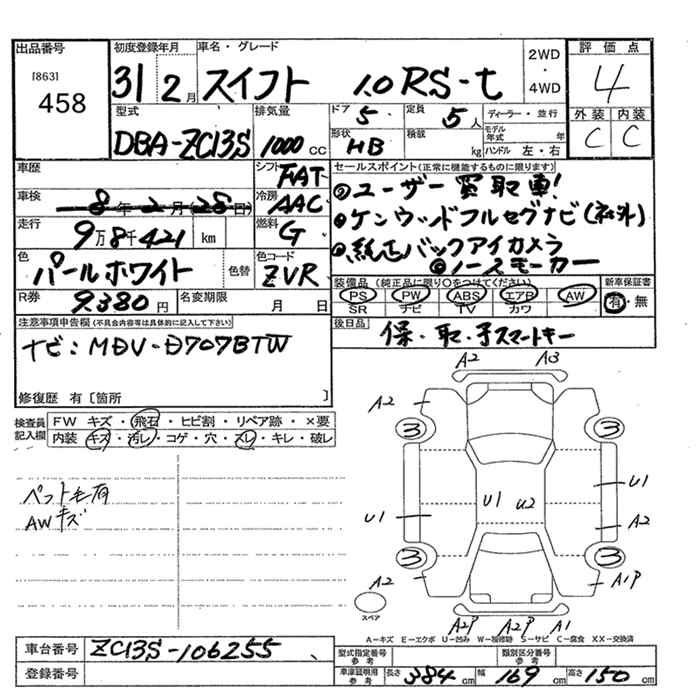 出品番号
[863]
458
初度登録年月 車名・グレード
31 2月 スイフト 1.0 RS-t
2WD
・
4WD
評価点
4
外装 内装
C C
型式 排気量
DBA-ZC13S 1000 CC
ドア 定員 ディーラー・並行
5 5人
形状 積載 モデル年式 年
HB kg ハンドル 左・右
車歴 シフト
FAT
車検 冷房
8年2月(28日) AAC
走行 燃料
9万8千421 km G
色 色替 色コード
パールホワイト ZVR
R券 名変期限
9.380円 月 日
セールスポイント(正常に機能するものに限ります)
ユーザー買取車!
ケンウッドフルセグナビ(社外)
純正バックアイカメラ
ノースモーカー
装備品 (純正品に限り○をつけてください) 新車保証書
PS PW ABS エアB AW 有・無
SR ナビ TV カワ
後日品
保・取・予スマートキー
注意事項申告欄(不具合内容等は具体的に記入して下さい)
ナビ:MDV-D707BTW
修復歴 有〔箇所 〕
検査員記入欄
FW キズ・飛石・ヒビ割・リペア跡・×要
内装 キズ・汚レ・コゲ・穴・スレ・キレ・破レ
ペット毛有
AWキズ
A2 A3
A2
3 3
U1 U2 U1
U1 A2
3 3
A2 A1P
スペア
A2P A2P A1
A－キズ E－エクボ U－凹み W－補修跡 S－サビ C－腐食 XX－交換済
車台番号 ZC13S-106255
登録番号
型式指定番号 参考 類別区分番号 参考
車検証明用 参考 長さ 384cm 幅 169cm 高さ 150cm